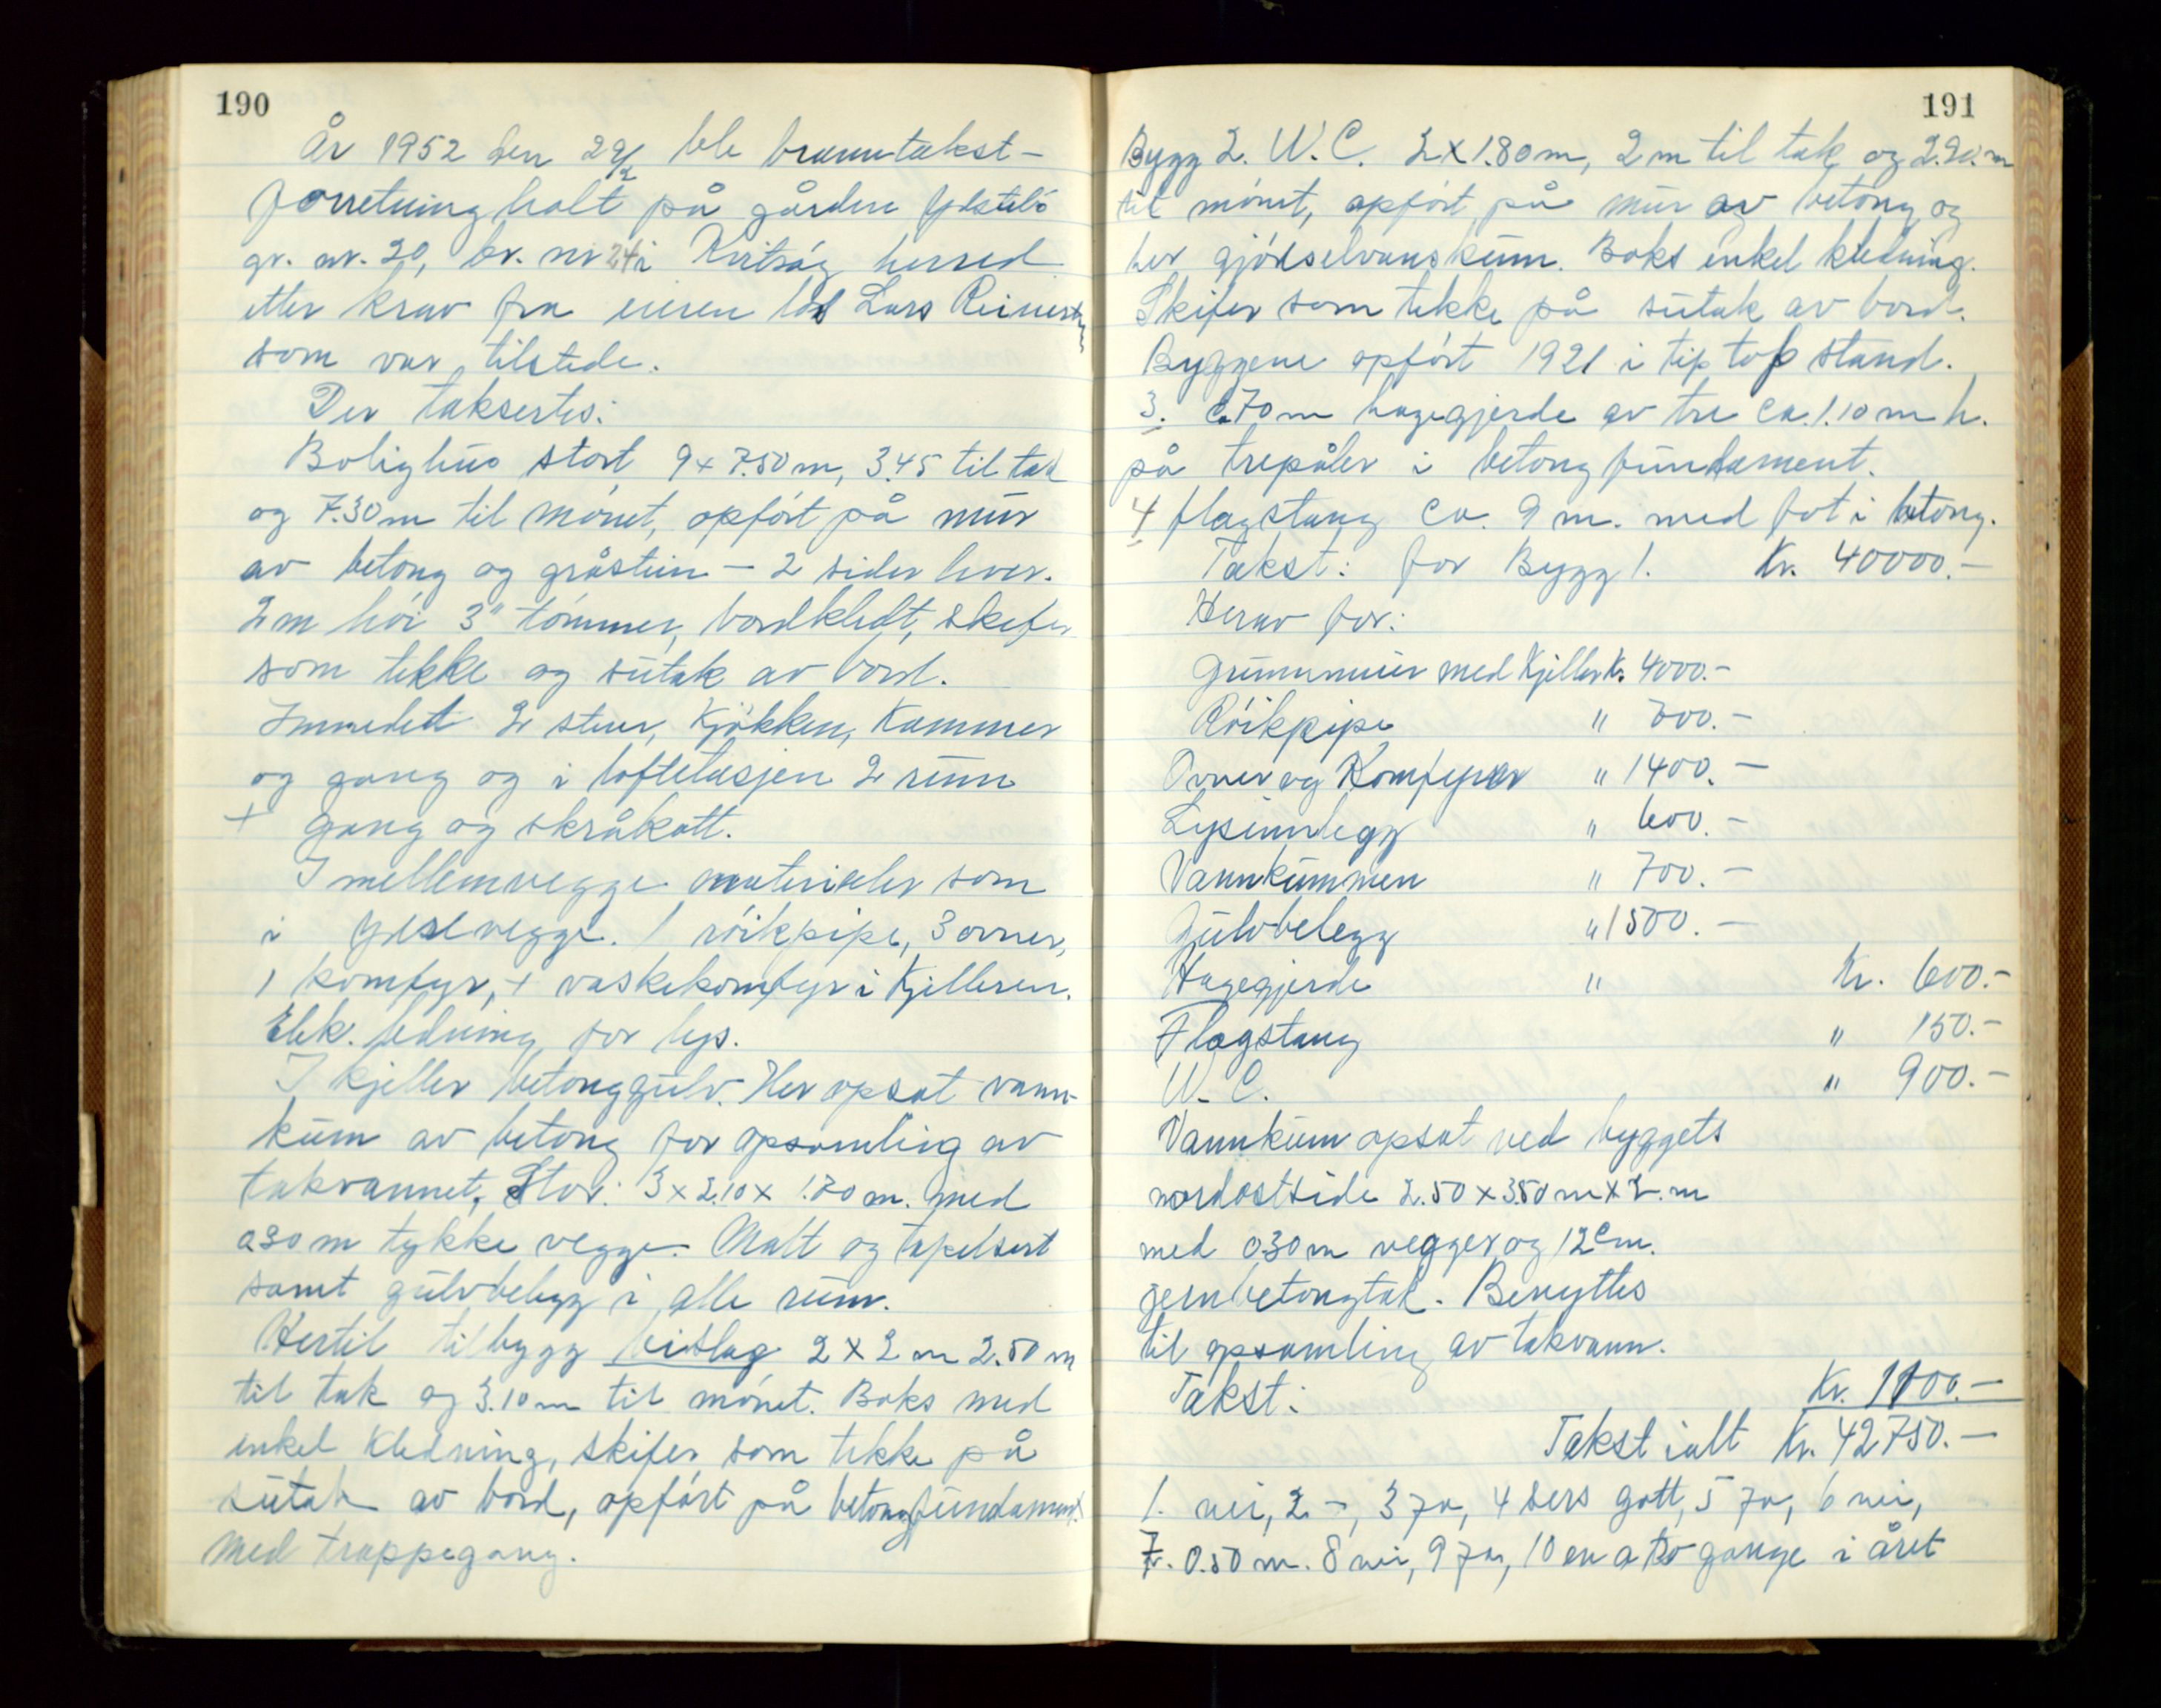 190
År 1952 den 29/2 ble branntakst-
forretning holt på gården
gr. nr. 20, br. nr 24 i Kvitsöy herred
etter krav fra eieren Lars Reinertsen
som var tilstede.
Der taksertes:
Bolighus stort 9 x 7.50 m, 3.45 til tak
og 7.30 m til mönet, opfört på mur
av betong og gråstein – 2 sider hver.
2 m höi 3" tömmer, bordkledt, skifer
som tekke og sutak av bord.
Innredett 2 stuer, Kjökken, Kammer
og gang og i loftetasjen 2 rum
+ gang og skråkott.
I mellemvegge materialer som
i yttervegge. 1 röikpipe, 3 ovner,
1 komfyr, + vaskekomfyr i Kjelleren.
Elek. ledning for lys.
I kjeller betonggulv. Her opsat vann-
kum av betong for opsamling av
takvannet, Stor: 3 x 2.10 x 1.70 m. med
0.30 m tykke vegge. Malt og tapetsert
samt gulvbelegg i alle rum.
Hertil tilbygg bislag 2 x 2 m 2.50 m
til tak og 3.10 m til mönet. Boks med
enkel kledning, skifer som tekke på
sutak av bord, opfört på betongfundament.
med trappegang.
191
Bygg 2. W.C. 2 x 1.80 m, 2 m til tak og 2.90. m
til mönet, opfört på mur av betong og
her gjödselvanskum. Boks enkel kledning.
Skifer som tekke på sutak av bord.
Byggene opfört 1921 i tip top stand.
3. c. 70 m hagegjerde av tre ca. 1.10 m h.
på trepåler i betong fundament.
4 flagstang ca. 9 m. med fot i betong.
Takst: for Bygg 1. Kr. 40000.–
Herav for:
Grunnmur med Kjeller Kr. 4000.–
Röikpipe " 700.–
Ovner og Komfyrer " 1400.–
Lysinnlegg " 600.–
Vannkummen " 700.–
Gulvbelegg " 1500.–
Hagegjerde " Kr. 600.–
Flagstang " 150.–
W. C. " 900.–
Vannkum opsat ved byggets
nordostside 2.50 x 3.50 m x 2. m
med 0.30 m vegger og 12 cm.
jernbetongtak. Benyttes
til opsamling av takvann.
Takst: Kr. 1100.–
Takst ialt Kr. 42750.–
1. nei, 2 –, 3 ja, 4 sers gott, 5 ja, 6 nei,
7. 0.50 m. 8 nei, 9 ja, 10 en a to gange i året